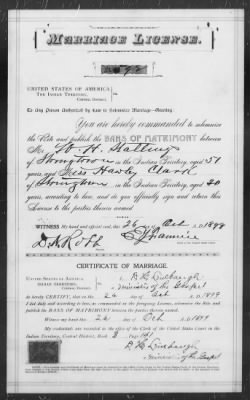 MARRIAGE LICENSE.
UNITED STATES OF AMERICA
THE INDIAN TERRITORY,
CENTRAL DISTRICT.
To Any Person Authorized by Law to Solemnize Marriage—Greeting:
You are hereby commanded to solemnize
the Rite and publish the BANS OF MATRIMONY between
Mr. W. H.
of Stringtown in the Indian Territory, aged 51
years, and Miss Clard
of Stringtown in the Indian Territory, aged 20
years, according to law, and do you officially sign and return this
License to the parties therein named.
WITNESS my hand and official seal, this 26 day of Oct 1899
D. N. Robb
CERTIFICATE OF MARRIAGE.
UNITED STATES OF AMERICA,
INDIAN TERRITORY,
CENTRAL DISTRICT.
I,
Minister of the Gospel
do hereby CERTIFY, that on the 26 day of Oct 1899
I did duly and according to law, as commanded in the foregoing License, solemnize the Rite and
publish the BANS OF MATRIMONY between the parties therein named.
Witness my hand this 26 day of Oct 1899
My credentials are recorded in the office of the Clerk of the United States Court in the
Indian Territory, Central District, Book B Page
Minister of the Gospel